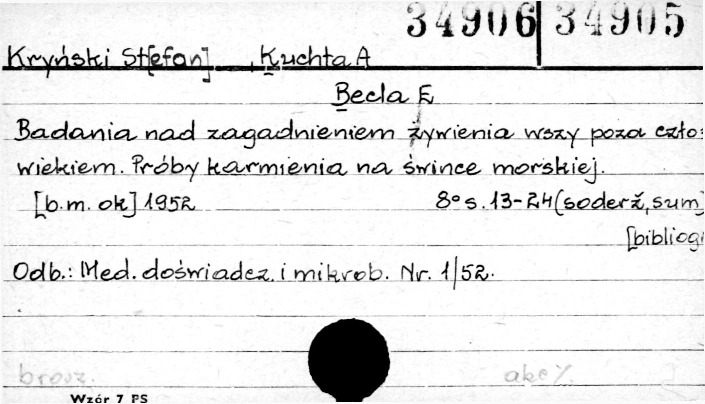 34906 34905
Kryński St[efan], Kuchta A
Becla E
Badania nad zagadnieniem żywienia wszy poza czło=
wiekiem. Próby karmienia na śwince morskiej.
[b.m. ok] 1952 8° s. 13-24 (soderž, sum]
[bibliogr
Odb.: Med. doświadcz. i mikrob. Nr. 1/52.
brosz. akc
Wzór 7 PS